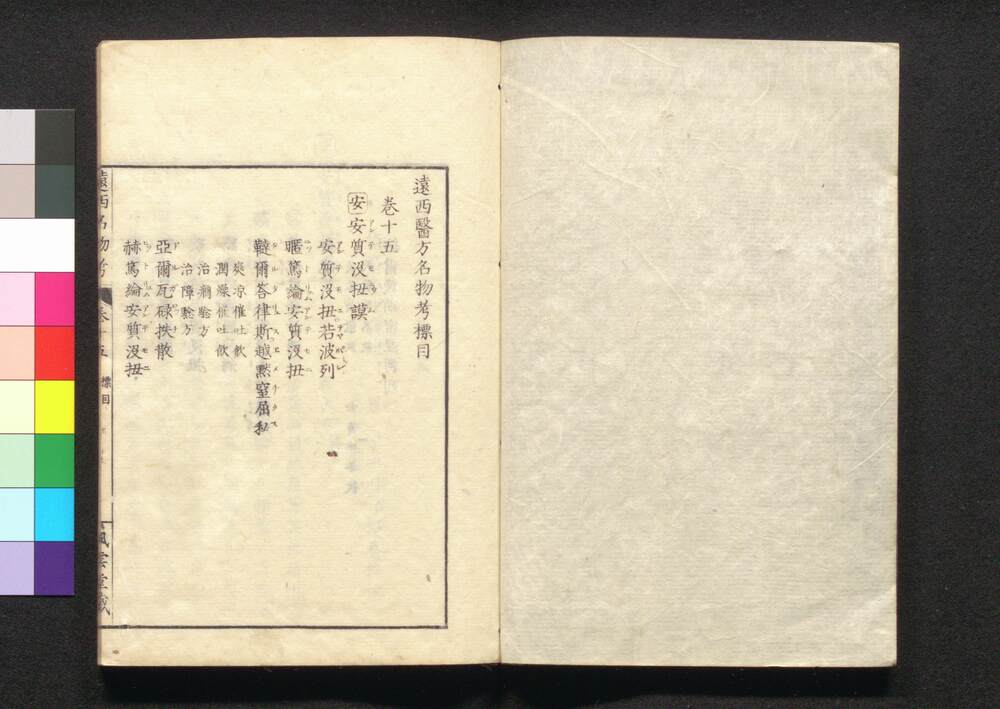 遠西醫方名物考標目
巻十五
安 安質没扭謨
安質没扭若波列
暱篤綸安質没扭
韃爾荅律斯越黙窒屈私
爽凉催吐飲
潤澡催吐飲
治瀕驗方
治障驗方
亞爾瓦碌扶散
赫篤綸安質没扭
遠西名物考 巻十五 標目 風雲堂藏